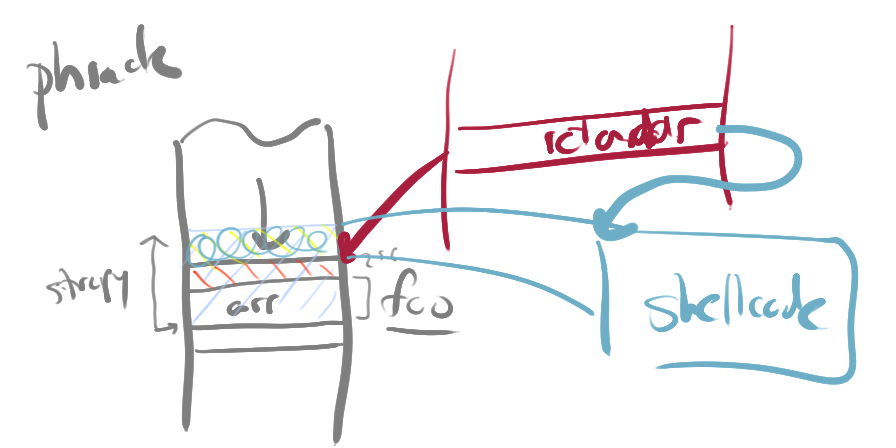 phrack
ret addr
strcpy
arr
foo
shellcode